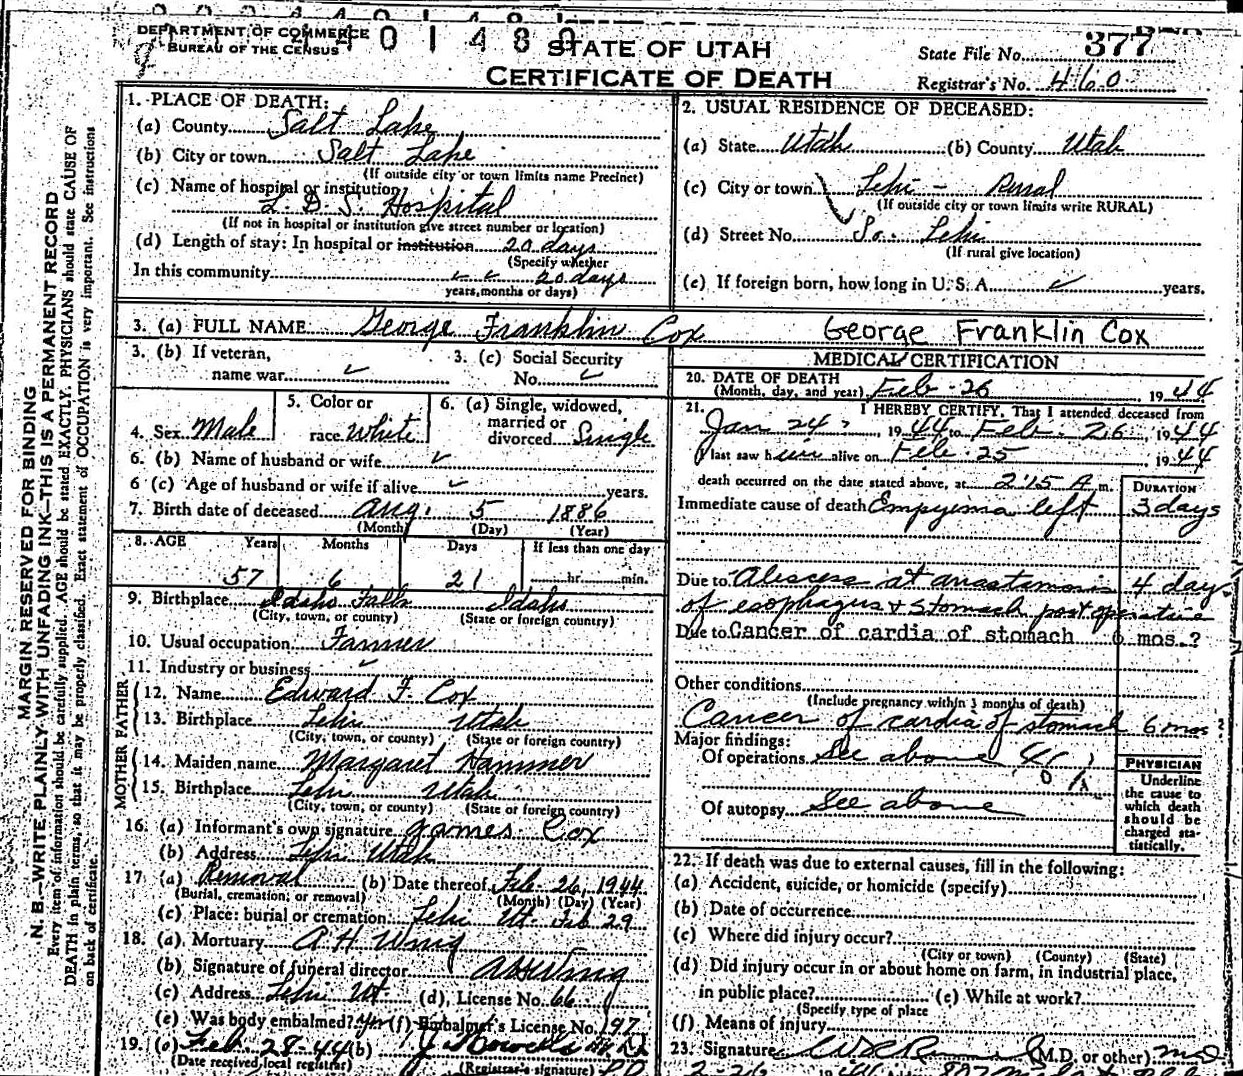 DEPARTMENT OF COMMERCE
BUREAU OF THE CENSUS
STATE OF UTAH
CERTIFICATE OF DEATH
State File No. 377
Registrar's No. 460
MARGIN RESERVED FOR BINDING
N. B.—WRITE PLAINLY WITH UNFADING INK—THIS IS A PERMANENT RECORD
Every item of information should be carefully supplied. AGE should be stated EXACTLY. PHYSICIANS should state CAUSE OF
DEATH in plain terms, so that it may be properly classified. Exact statement of OCCUPATION is very important. See instructions
on back of certificate.
1. PLACE OF DEATH:
(a) County Salt Lake
(b) City or town Salt Lake
(If outside city or town limits name Precinct)
(c) Name of hospital or institution
L. D. S. Hospital
(If not in hospital or institution give street number or location)
(d) Length of stay: In hospital or institution 20 days
(Specify whether
In this community 20 days
years, months or days)
2. USUAL RESIDENCE OF DECEASED:
(a) State Utah (b) County Utah
(c) City or town Lehi - Rural
(If outside city or town limits write RURAL)
(d) Street No. So. Lehi
(If rural give location)
(e) If foreign born, how long in U. S. A. ✓ years.
3. (a) FULL NAME George Franklin Cox George Franklin Cox
3. (b) If veteran,
name war ✓
3. (c) Social Security
No. ✓
4. Sex Male
5. Color or
race White
6. (a) Single, widowed,
married or
divorced Single
6. (b) Name of husband or wife ✓
6 (c) Age of husband or wife if alive ✓ years.
7. Birth date of deceased Aug. 5 1886
(Month) (Day) (Year)
8. AGE Years Months Days If less than one day
57 6 21 hr. min.
9. Birthplace Idaho Falls Idaho
(City, town, or county) (State or foreign country)
10. Usual occupation Farmer
11. Industry or business ✓
FATHER
12. Name Edward F. Cox
13. Birthplace Lehi Utah
(City, town, or county) (State or foreign country)
MOTHER
14. Maiden name Margaret Hammer
15. Birthplace Lehi Utah
(City, town, or county) (State or foreign country)
16. (a) Informant's own signature James Cox
(b) Address Lehi Utah
17. (a) Removal (b) Date thereof Feb 26, 1944
(Burial, cremation, or removal) (Month) (Day) (Year)
(c) Place: burial or cremation Lehi Ut. Feb 29
18. (a) Mortuary A H Wing
(b) Signature of funeral director A H Wing
(c) Address Lehi Ut. (d) License No. 66
(e) Was body embalmed? yes (f) Embalmer's License No. 197
19. (a) Feb 28-44 (b)
(Date received local registrar) (Registrar's signature)
MEDICAL CERTIFICATION
20. DATE OF DEATH
(Month, day, and year) Feb - 26, 1944
21. I HEREBY CERTIFY, That I attended deceased from
Jan 24, 1944 to Feb. 26, 1944
I last saw him alive on Feb. 25 1944
death occurred on the date stated above, at 2:15 A m.
DURATION
Immediate cause of death Empyema left 3 days
Due to Abscess at anastamosis 4 day
of esophagus & stomach post operative
Due to Cancer of cardia of stomach 6 mos.?
Other conditions
(Include pregnancy within 3 months of death)
Cancer of cardia of stomach 6 mos
Major findings:
Of operations See above
Of autopsy See above
PHYSICIAN
Underline
the cause to
which death
should be
charged sta-
tistically.
22. If death was due to external causes, fill in the following:
(a) Accident, suicide, or homicide (specify)
(b) Date of occurrence
(c) Where did injury occur?
(City or town) (County) (State)
(d) Did injury occur in or about home on farm, in industrial place,
in public place? (e) While at work?
(Specify type of place
(f) Means of injury
23. Signature (M.D. or other) MD